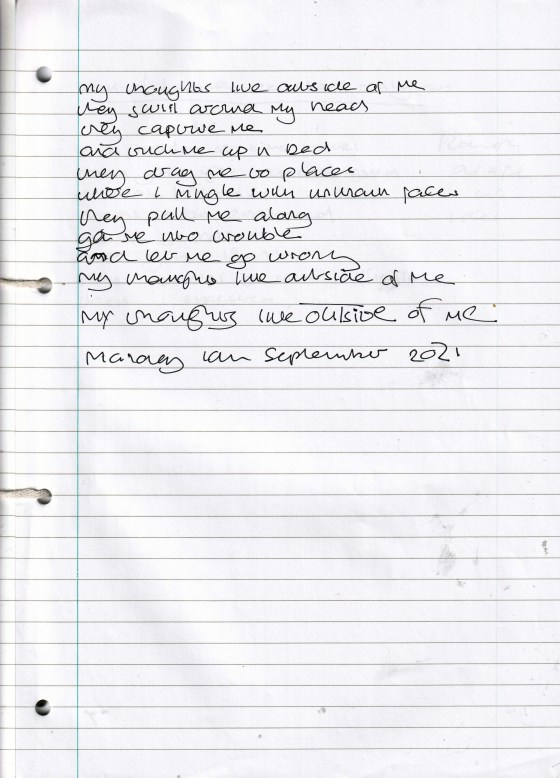 my thoughts live outside of me
they swirl around my head
they capture me
and tuck me up in bed
they drag me to places
where i mingle with unknown faces
they pull me along
get me into trouble
and let me go wrong
my thoughts live outside of me
my thoughts live outside of me
September 2021